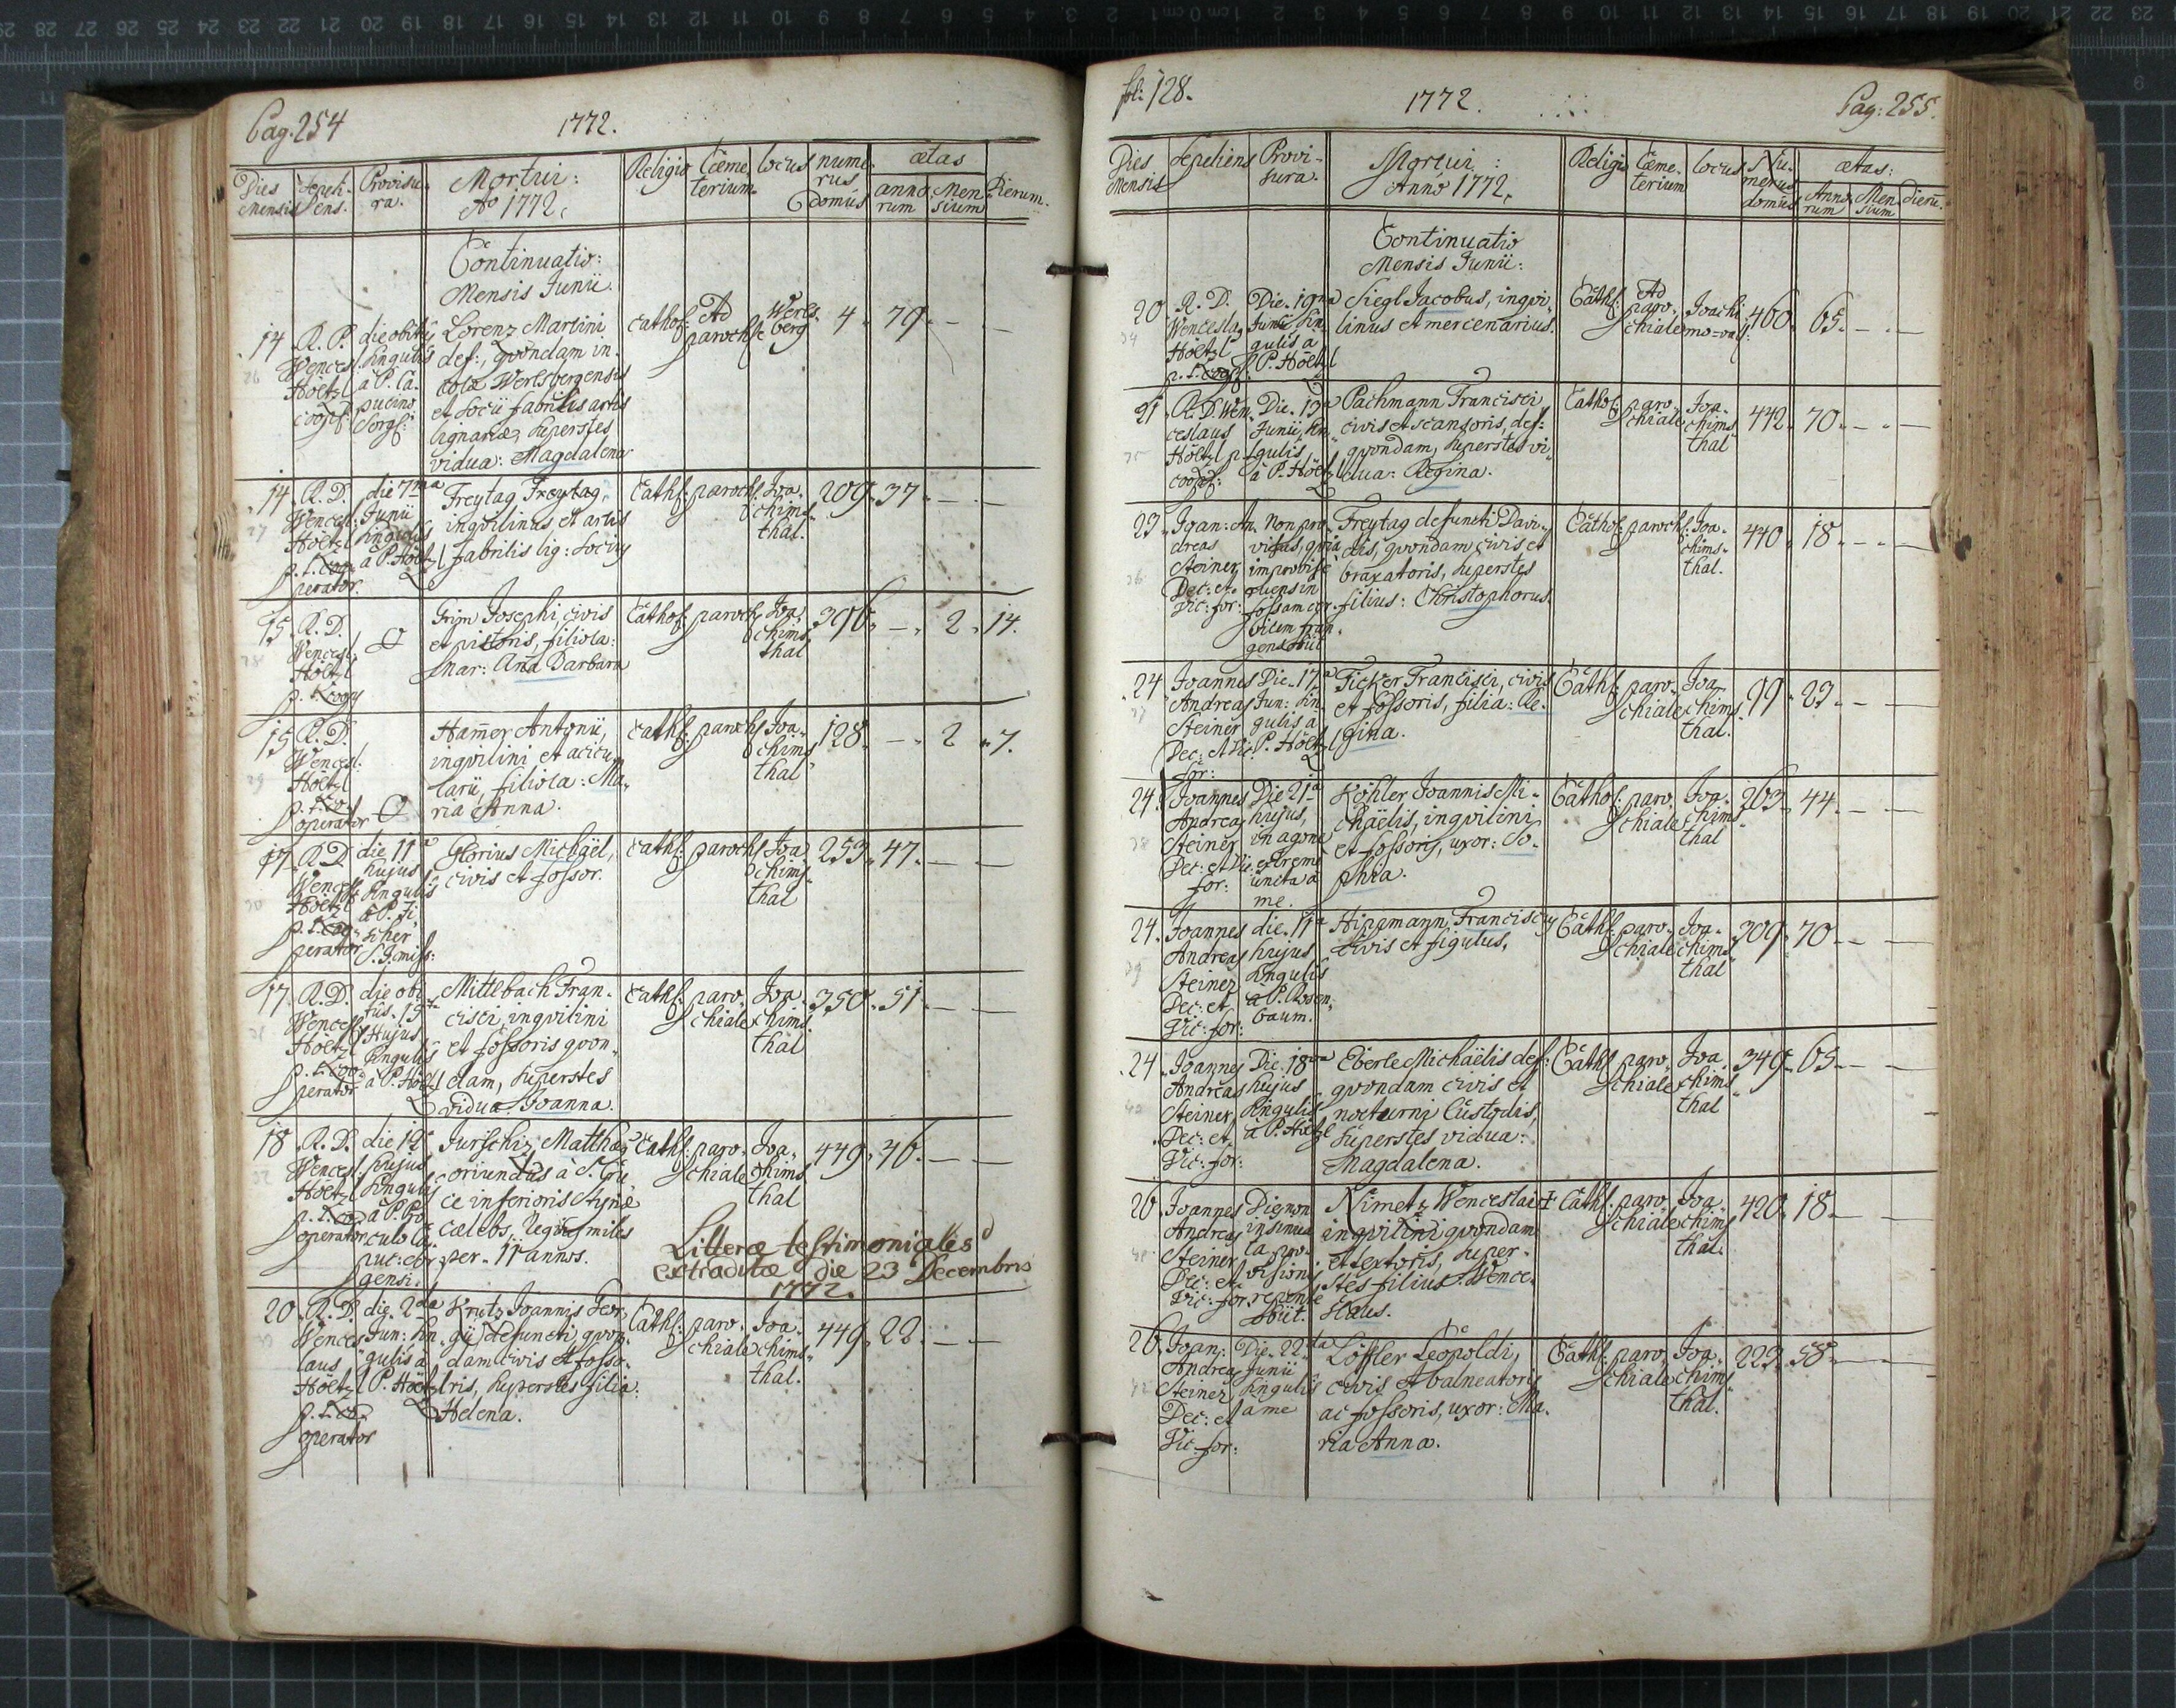 Pag. 254
1772.
Dies Mensis
Sepeli-
ens.
Provisu-
ra.
Mortui:
Ao 1772.
Religio
Cœme-
terium
locus
nume-
rus
domûs
ætas
anno-
rum
Men-
sium
Dierum.
Continuatio:
Mensis Junii.
14
Wences:
Höltzl
coop:
die obitûs
singulis
à P. Ca-
pucino
Lorenz Martini
def:, qvondam in-
colæ Werlsbergensis
et socii fabrilis artis
lignariæ, superstes
vidua: Magdalena
Cathol:
Ad
paroch:
Werls-
berg
4
79
14
R. D.
Wencesl:
Höltzl
p. t. coo-
perator.
die 7ma
Junii
singulis
à P. Höltzl
Freytag Freytag,
inqvilinus et artis
fabrilis lig: socius
Cathl:
paroch:
Joa-
chims-
thal.
209
37
15
R. D.
Wencesl:
Höltzl
Grim Josephi, civis
et pistoris, filiola:
Mar: Aña Barbara
Cathol:
paroch:
Joa-
chims-
thal
396
2
14.
15
R. D.
Wencesl:
Höltzl
p. t. co-
operator
Ham̃er Antonii,
inqvilini et acicu-
larii, filiola: Ma-
ria Anna.
Cathl:
paroch:
Joa-
chims-
thal
128
2
7.
17
R. D.
Wencesl:
Höltzl
p. t. coo-
perator
die 11a
hujus
singulis
à P. Fi-
scher
S. J. miss:
Glorius Michaël,
civis et fossor.
Cathl:
paroch:
Joa-
chims-
thal
253
47
17
R. D.
Wencesl:
Höltzl
p. t. coo-
perator
die obi-
tûs 15ta
Hujus
singulis
à P. Höltzl
Mittlbach Fran-
cisci, inqvilini
et fossoris qvon-
dam, superstes
vidua: Joanna.
Cathl:
paro-
chiale
Joa-
chims-
thal
350
51
18
R. D.
Wencesl:
Höltzl
p. t. co-
operator
die 12a
hujus
singulis
Jurschiz Matthæus
oriundus à S. Cru-
ce inferioris Styriæ
cælebs, Regius miles
per 11 annos.
Cathl:
paro-
chiale
Joa-
chims-
thal
449
46
Litteræ testimoniales
extraditæ die 23 Decembris
1772.
20
R. D.
Wences-
laus
Höltzl
p. t. co-
operator
die 2da
Jun: sin-
gulis à
P. Höltzl
Krutz Joannis Geor-
gii defuncti, qvon-
dam civis et fosso-
ris, superstes filia:
Helena.
Cathl:
paro-
chiale
Joa-
chims-
thal.
449
22
fol: 128.
1772.
Pag: 255.
Dies
Mensis
Sepeliens
Provi-
sura.
Mortui:
Anno 1772.
Religio
Cœme-
terium
locus
Nu-
merus
domûs
ætas:
Anno-
rum
Men-
sium
Dieru.
Continuatio
Mensis Junii:
20
R. D.
Wencesla-
Höltzl
Die 19na
Junii sin-
gulis à
P. Höltzl
Siegl Jacobus, inqvi-
linus et mercenarius.
Cathl:
Ad
paro-
chiale
460
65
21
R. D. Wen-
ceslaus
Höltzl p. t.
coop:
Die 13a
Junii, sin-
gulis,
à P. Höltzl
Pachmann Francisci
civis et scansoris, def:
qvondam, superstes vi-
dua: Regina.
Cathol:
paro-
chiale
Joa-
chims-
thal
442
70
23
Joan: An-
dreas
Steiner
Dec: et
Vic: for:
Non pro-
visus, qvia
improvise
ruens in
fossam cer-
vicem fran-
gens obiit
Freytag defuncti Davi-
dis, qvondam civis et
braxatoris, superstes
filius: Christophorus.
Cathol:
paroch:
Joa-
chims-
thal.
440
18
24
Joannes
Andreas
Steiner
Dec: et Vic:
for:
Die 17a
Jun: sin-
gulis à
P. Höltzl
Ficker Francisci, civis
et fossoris, filia: Re-
gina.
Cathl:
paro-
chiale
Joa-
chims-
thal.
99
23
24
Joannes
Andreas
Steiner
Dec: et Vic:
for:
Die 21a
hujus,
in agone
extreme
uncta à
me.
Köhler Joannis Mi-
chaëlis, inqvilini
et fossoris, uxor: So-
phia.
Cathol:
paro-
chiale
Joa-
chims-
thal
263
44
24
Joannes
Andreas
Steiner
Dec: et
Vic: for:
die 11a
hujus
singulis
à P. Rosen-
baum.
Hipmann Franciscus
civis et figulus,
Cathl:
paro-
chiale
Joa-
chims-
thal
309
70
24
Joannes
Andreas
Steiner
Dec: et
Vic: for:
Die 18va
hujus
singulis
à P. Höltzl
Eberle Michaëlis def:
qvondam civis et
nocturni Custodis,
superstes vidua:
Magdalena.
Cathl:
paro-
chiale
Joa-
chims-
thal
349
65
26
Joannes
Andreas
Steiner
Dec: et
Vic: for:
Die non
insinua-
ta pro-
visionis
repente
obiit.
Nimetz Wenceslai
inqvilini qvondam
et textoris, super-
stes filius: Wence-
slaus.
Cathl:
paro-
chiale
Joa-
chims-
thal.
420
18
26
Joan:
Andreas
Steiner
Dec: et
Vic: for:
Die 22da
Junii
singulis
à me
Löffler Leopoldi,
civis et balneatoris
ac fossoris, uxor: Ma-
ria Anna.
Cathl:
paro-
chiale
Joa-
chims-
thal.
223
58